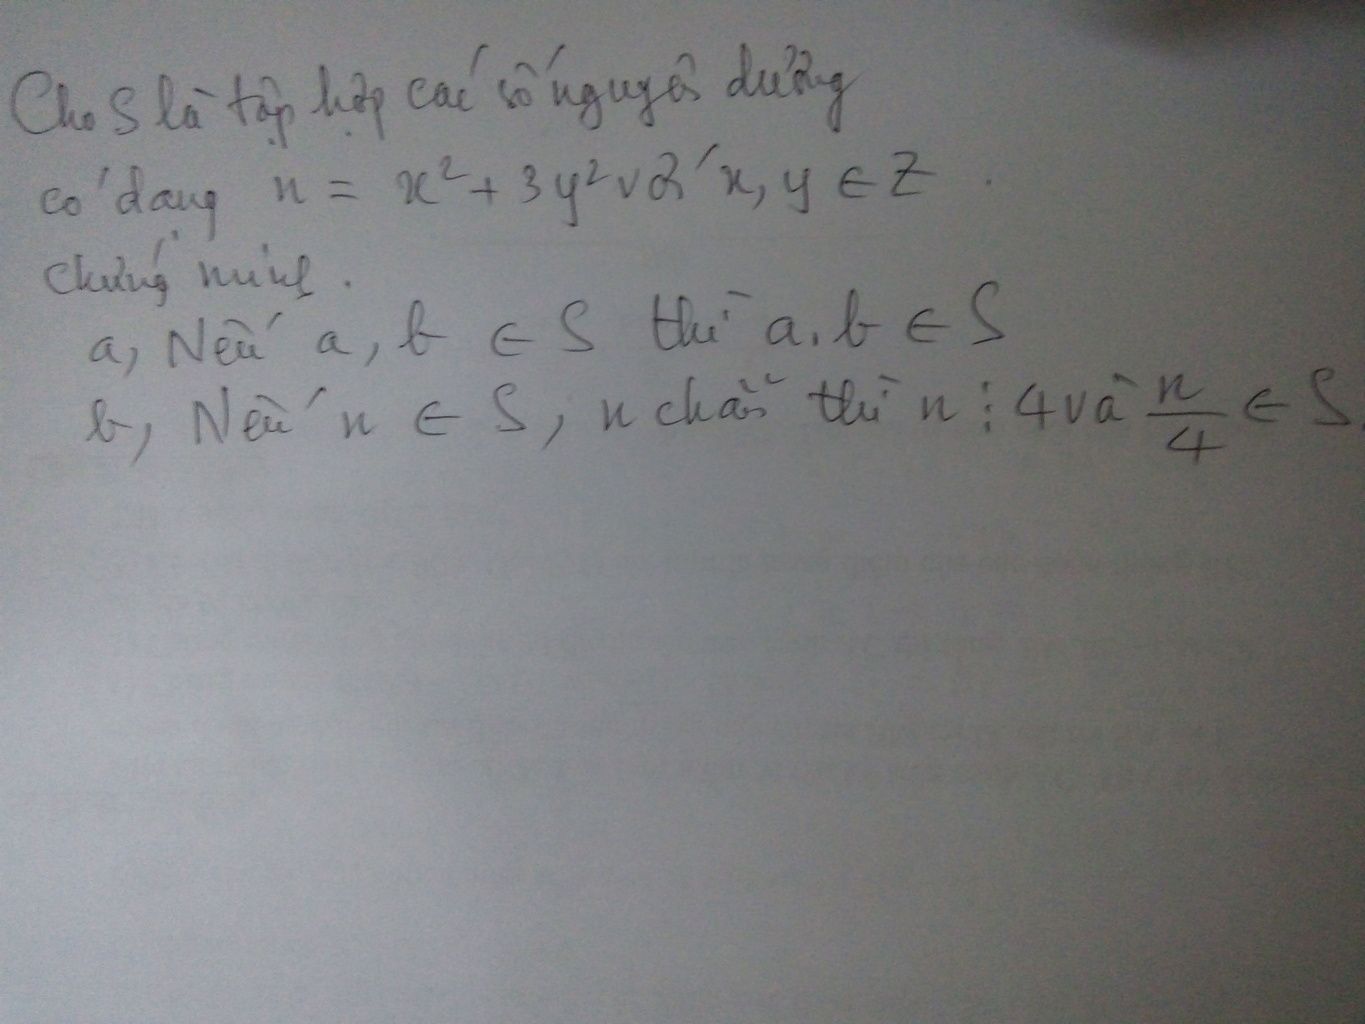 Cho S là tập hợp các số nguyên dương
có dạng n = x² + 3y² với x, y ∈ Z.
Chứng minh.
a, Nếu a, b ∈ S thì a.b ∈ S
b, Nếu n ∈ S, n chẵn thì n ⋮ 4 và n/4 ∈ S.